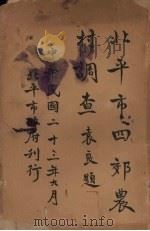 北平市四郊農
村調查 袁良題
中華民國二十三年九月
北平市政府刊行